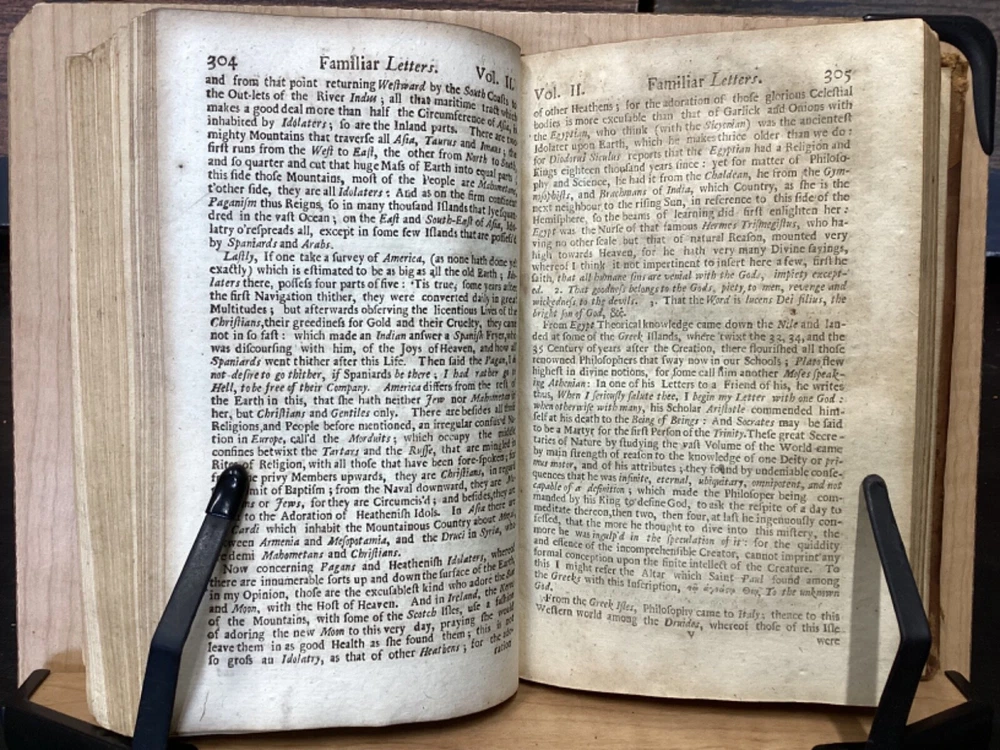 304 Familiar Letters. Vol. II.
and from that point returning Weſtward by the South Coaſts to
the Out-lets of the River Indus; all that maritime tract which
makes a good deal more than half the Circumference of Aſia, is
inhabited by Idolaters; ſo are the Inland parts. There are two
mighty Mountains that traverſe all Aſia, Taurus and Imaus; the
firſt runs from the Weſt to Eaſt, the other from North to South,
and ſo quarter and cut that huge Maſs of Earth into equal parts;
this ſide thoſe Mountains, moſt of the People are Mahometans,
t'other ſide, they are all Idolaters: And as on the firm continent
Paganiſm thus Reigns, ſo in many thouſand Iſlands that lye
dred in the vaſt Ocean; on the Eaſt and South-Eaſt of Aſia, Ido-
latry o'reſpreads all, except in ſome few Iſlands that are poſſeſs'd
by Spaniards and Arabs.
Laſtly, If one take a ſurvey of America, (as none hath done yet
exactly) which is eſtimated to be as big as all the old Earth; Ido-
laters there, poſſeſs four parts of five: 'Tis true, ſome years after
the firſt Navigation thither, they were converted daily in great
Multitudes; but afterwards obſerving the licentious Lives of the
Chriſtians, their greedineſs for Gold and their Cruelty, they came
not in ſo faſt: which made an Indian anſwer a Spaniſh Fryer, who
was diſcourſing with him, of the Joys of Heaven, and how all
Spaniards went thither after this Life. Then ſaid the Pagan, I do
not deſire to go thither, if Spaniards be there; I had rather go to
Hell, to be free of their Company. America differs from the reſt of
the Earth in this, that ſhe hath neither Jew nor Mahometan in
her, but Chriſtians and Gentiles only. There are beſides all thoſe
Religions, and People before mentioned, an irregular confus'd Na-
tion in Europe, call'd the Morduits; which occupy the middle
confines betwixt the Tartars and the Ruſſe, that are mingled in
Rites of Religion, with all thoſe that have been fore-ſpoken; for
privy Members upwards, they are Chriſtians, in regard
mit of Baptiſm; from the Naval downward, they are
or Jews, for they are Circumcis'd; and beſides, they are
to the Adoration of Heatheniſh Idols. In Aſia there are
Cardi which inhabit the Mountainous Country about
tween Armenia and Meſopotamia, and the Druci in Syria, who
demi Mahometans and Chriſtians.
Now concerning Pagans and Heatheniſh Idolaters, whereof
there are innumerable ſorts up and down the ſurface of the Earth,
in my Opinion, thoſe are the excuſableſt kind who adore the Sun
and Moon, with the Hoſt of Heaven. And in Ireland, the
of the Mountains, with ſome of the Scotch Iſles, uſe a faſhion
of adoring the new Moon to this very day, praying ſhe would
leave them in as good Health as ſhe found them; this is not
ſo groſs an Idolatry, as that of other Heathens; for the ado-
ration
Vol. II. Familiar Letters. 305
of other Heathens; for the adoration of thoſe glorious Celeſtial
bodies is more excuſable than that of Garlick and Onions with
the Egyptian, who think (with the Sicyonian) was the ancienteſt
Idolater upon Earth, which he makes thrice older than we do:
for Diodorus Siculus reports that the Egyptian had a Religion and
Kings eighteen thouſand years ſince: yet for matter of Philoſo-
phy and Science, he had it from the Chaldean, he from the Gym-
noſophiſts, and Brachmans of India, which Country, as ſhe is the
next neighbour to the riſing Sun, in reference to this ſide of the
Hemiſphere, ſo the beams of learning did firſt enlighten her:
Egypt was the Nurſe of that famous Hermes Triſmegiſtus, who ha-
ving no other ſcale but that of natural Reaſon, mounted very
high towards Heaven, for he hath very many Divine ſayings,
whereof I think it not impertinent to inſert here a few, firſt he
ſaith, that all humane ſins are venial with the Gods, impiety except-
ed. 2. That goodneſs belongs to the Gods, piety to men, revenge and
wickedneſs to the devils. 3. That the Word is lucens Dei filius, the
bright ſon of God, &c.
From Egypt Theorical knowledge came down the Nile and lan-
ded at ſome of the Greek Iſlands, where 'twixt the 32, 34, and the
35 Century of years after the Creation, there flouriſhed all thoſe
renowned Philoſophers that ſway now in our Schools; Plato flew
higheſt in divine notions, for ſome call him another Moſes ſpeak-
ing Athenian: In one of his Letters to a Friend of his, he writes
thus, When I ſeriouſly ſalute thee, I begin my Letter with one God:
when otherwiſe with many, his Scholar Ariſtotle commended him-
ſelf at his death to the Being of Beings: And Socrates may be ſaid
to be a Martyr for the firſt Perſon of the Trinity. Theſe great Secre-
taries of Nature by ſtudying the vaſt Volume of the World came
by main ſtrength of reaſon to the knowledge of one Deity or pri-
mus motor, and of his attributes; they found by undeniable conſe-
quences that he was infinite, eternal, ubiquitary, omnipotent, and not
capable of a definition; which made the Philoſoper being com-
manded by his King to define God, to ask the reſpite of a day to
meditate thereon, then two, then four, at laſt he ingenuouſly con-
feſſed, that the more he thought to dive into this miſtery, the
more he was ingulp'd in the ſpeculation of it: for the quiddity
and eſſence of the incomprehenſible Creator, cannot imprint any
formal conception upon the finite intellect of the Creature. To
this I might refer the Altar which Saint Paul found among
the Greeks with this Inſcription, To the unknown
God.
From the Greek Iſles, Philoſophy came to Italy; thence to this
Weſtern world among the Druides, whereof thoſe of this Iſle
V were